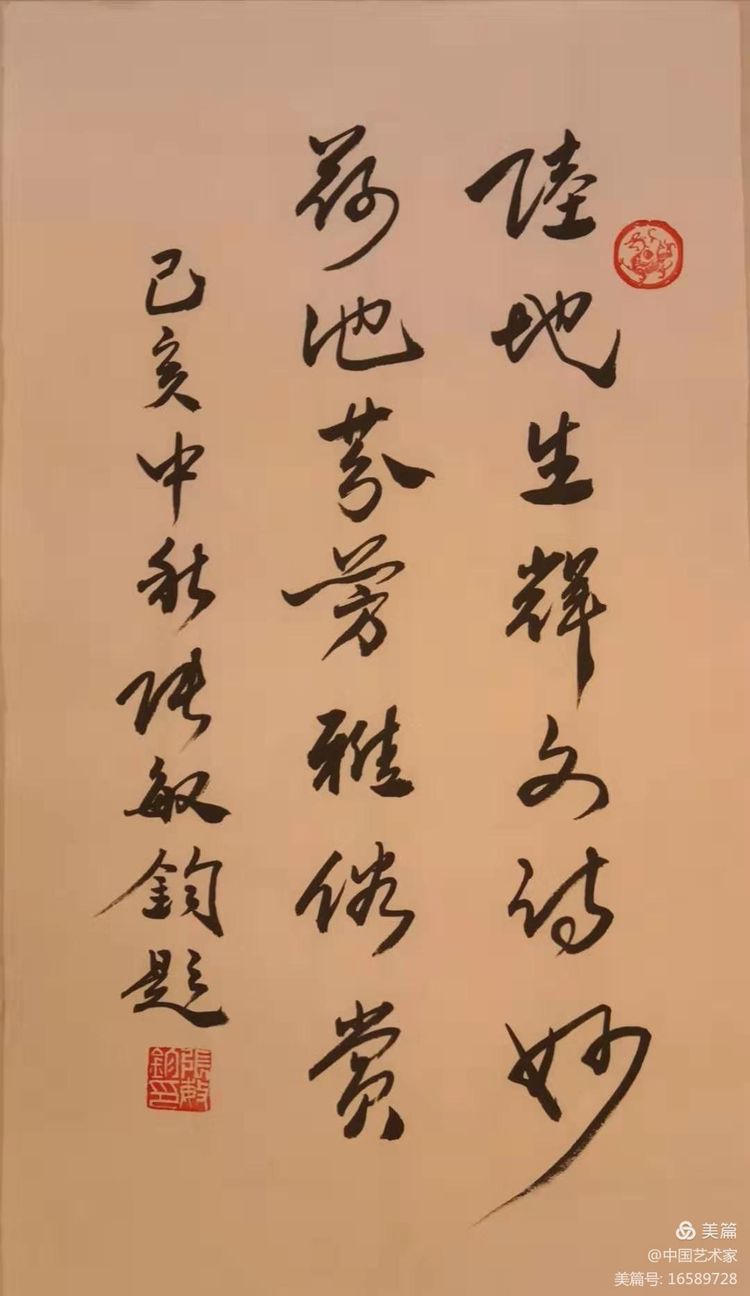 陸地生輝文诗妙
荷池芬芳雅俗賞
己亥中秋张敏鈞题
張敏鈞印
美篇
@中国艺术家
美篇号: 16589728